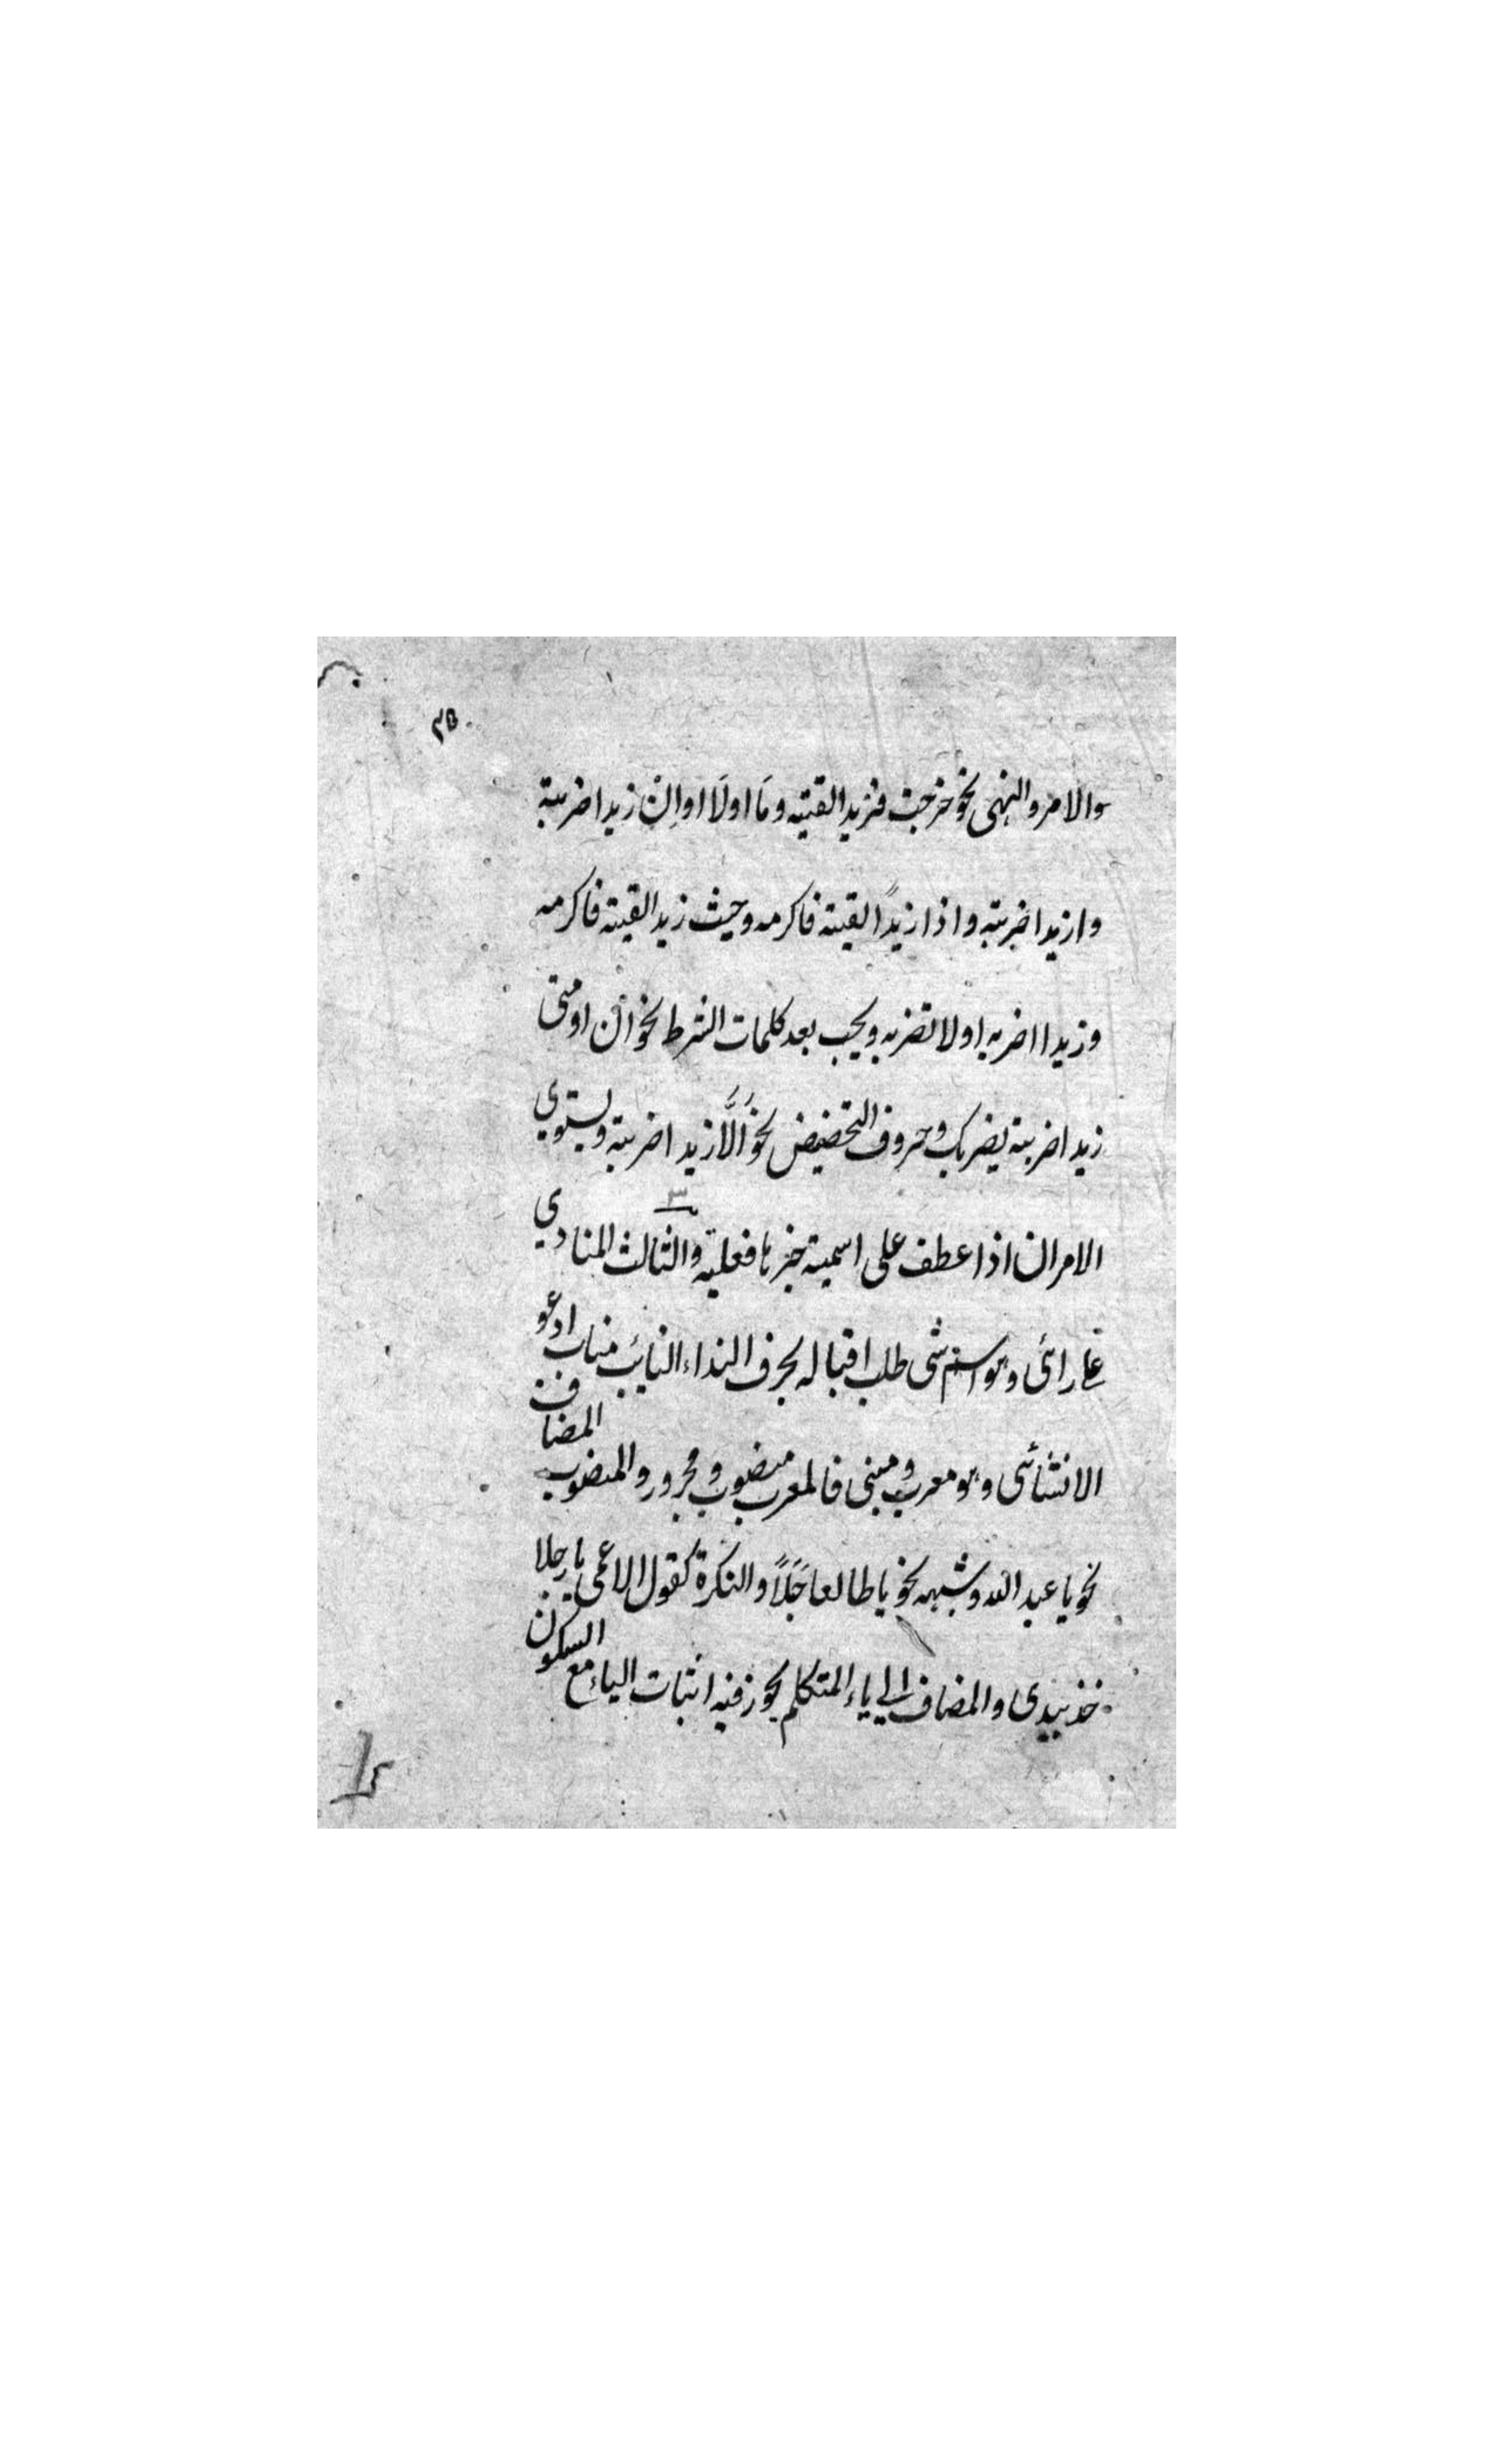 ۳۵
والامر والنهى نحو خرجت فزيد القيته ومَا اولَا اواِنْ زيدا ضربته
وازيدا ضربته واذا زيدًا لقيته فاكرمه وحيث زيد القيته فاكرمه
وزيدا اضربه او لا تضربه ويجب بعد كلمات الشرط نحو ان او متى
زيد اضربته يضربك وحروف التحضيض نحو اَلَّا زيد اضربته ويستوي
الامران اذا عطف على اسمية خبرها فعلية والثالث المنادي
وهو اسم شى طلب اقباله بحرف النداء النائب مناب ادعو
الانشائى وهو معرب ومبنى فالمعرب منصوب ومجرور والمنصوب المضاف
نحو يا عبد الله وشبهه نحو يا طالعا جَبَلًا والنكرة كقول الاعمى يا رجلا
خذ بيدى والمضاف الى ياء المتكلم يجوز فيه اثبات الياء مع السكون